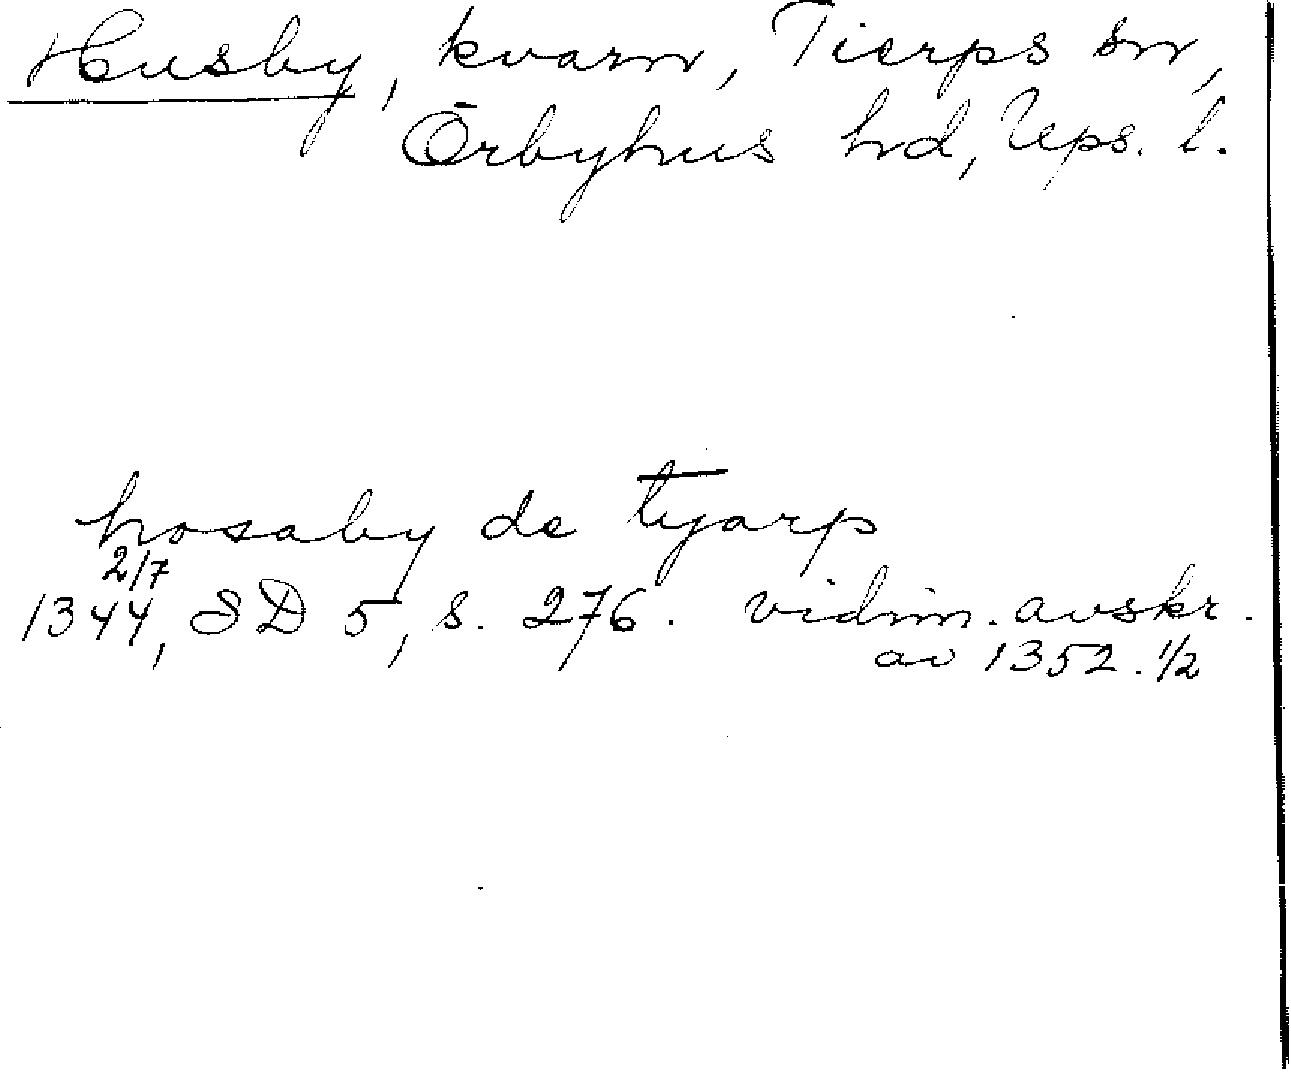 Husby, kvarn, Tierps sn,
Örbyhus hd, Ups. l.
hosaby de tyarp
2/7
1344, SD 5, s. 276. vidim. avskr.
av 1352. 1/2